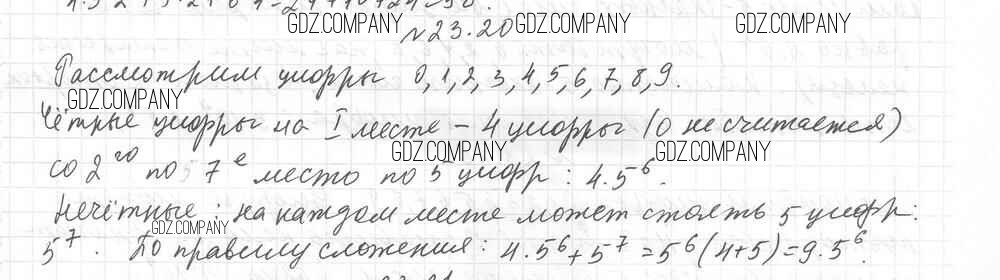 GDZ.COMPANY GDZ.COMPANY GDZ.COMPANY
№23.20
Рассмотрим цифры 0,1,2,3,4,5,6,7,8,9.
GDZ.COMPANY
Чётные цифры на I месте – 4 цифры (0 не считается)
GDZ.COMPANY GDZ.COMPANY
со 2го по 7е место по 5 цифр: 4·5⁶.
Нечётные: на каждом месте может стоять 5 цифр:
GDZ.COMPANY
5⁷. По правилу сложения: 4·5⁶+5⁷=5⁶(4+5)=9·5⁶.